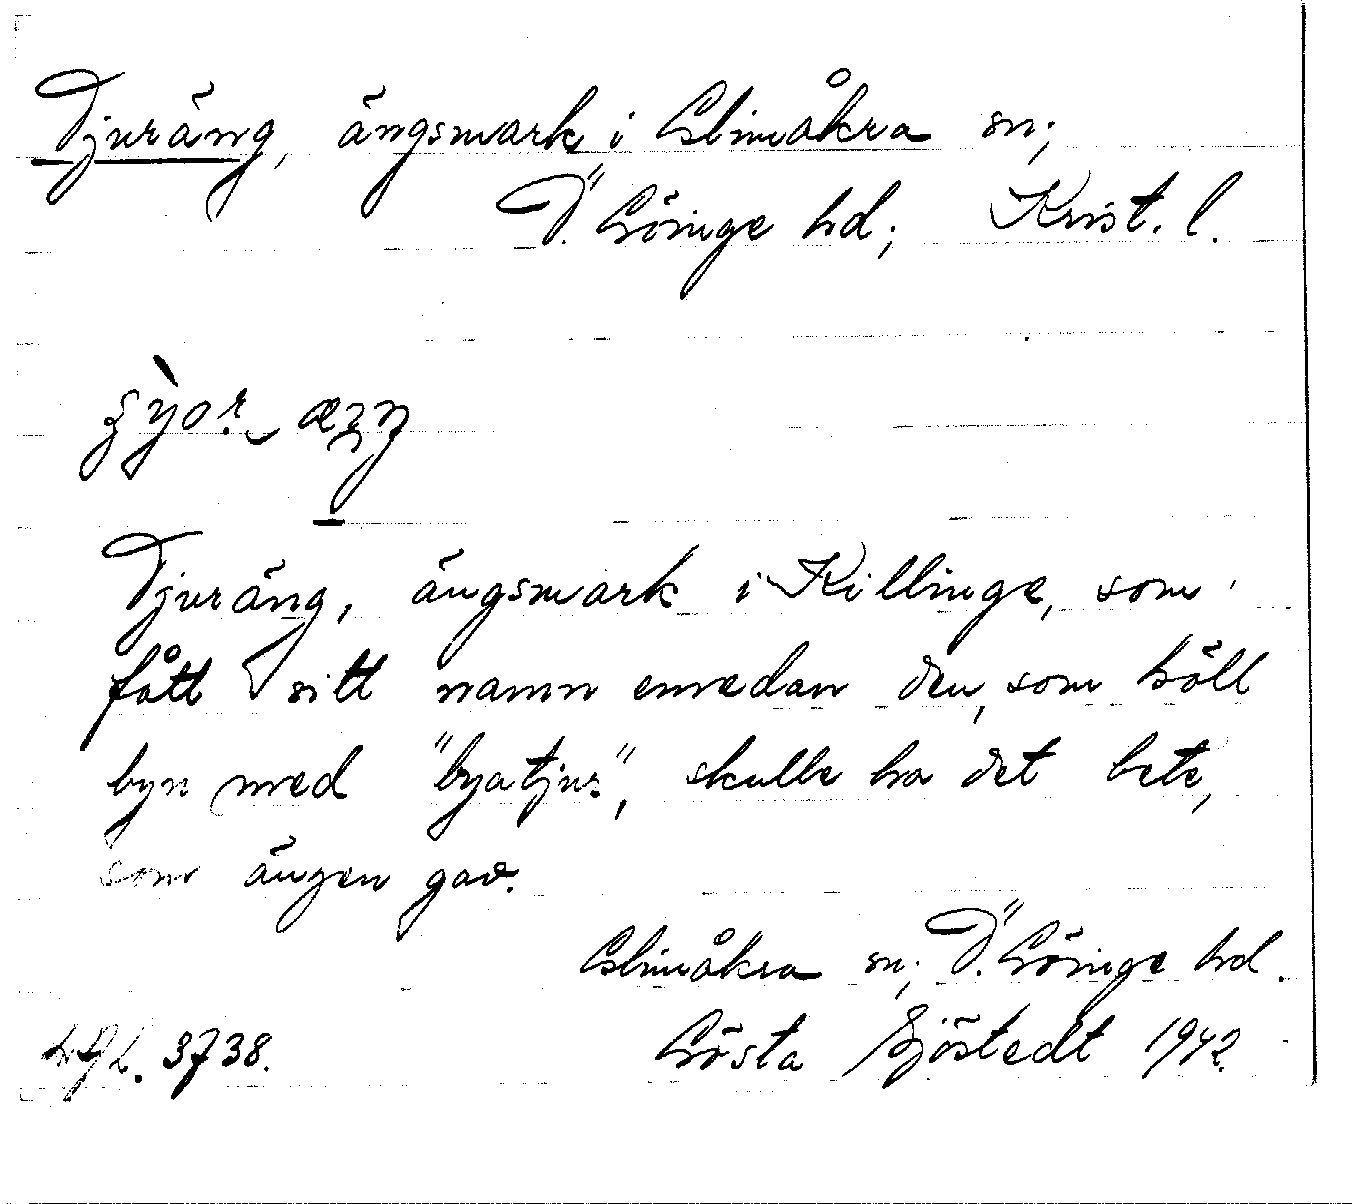 Tjuräng, ängsmark i Glimåkra sn;
Ö. Göinge hd; Krist. l.
Tjuräng, ängsmark i Killinge, som
fått sitt namn emedan den, som höll
byn med "byatjur", skulle ha det bete,
som ängen gav.
Glimåkra sn; Ö. Göinge hd.
3738. Gösta Sjöstedt 1942.